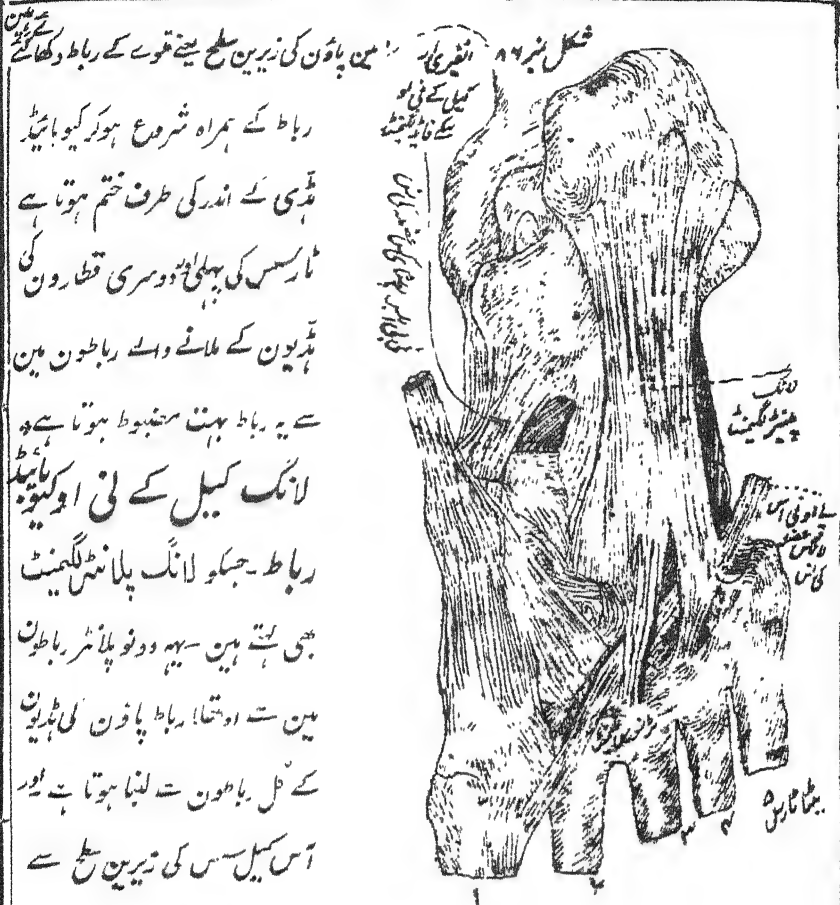 شکل نمبر ۸۶ مین پاؤن کی زیرین سطح یعنے تلوے کے رباط دکھائے گئے ہین
رباط کے ہمراہ شروع ہوکر کیوبائیڈ
ہڈی کے اندر کی طرف ختم ہوتا ہے
ٹارسس کی پہلی اور دوسری قطارون کی
ہڈیون کے ملانے والے رباطون مین
سے یہ رباط بہت مضبوط ہوتا ہے*
لانگ کیل کے نی او کیوبائیڈ
رباط - جسکو لانگ پلانٹر لگیمنٹ
بھی کہتے ہین - یہہ دونو پلانٹر رباطون
مین سے اوتھلا رباط پاؤن کی ہڈیون
کے کل رباطون سے لنبا ہوتا ہے اور
آس کیل سس کی زیرین سطح سے
انفیری ار
کیل کے نی او
لانگ
پلینٹر لگیمنٹ
پے رونی اس
لانگس عضلہ
کی نس
میٹا ٹارسل
۱
۲
۳
۴
۵